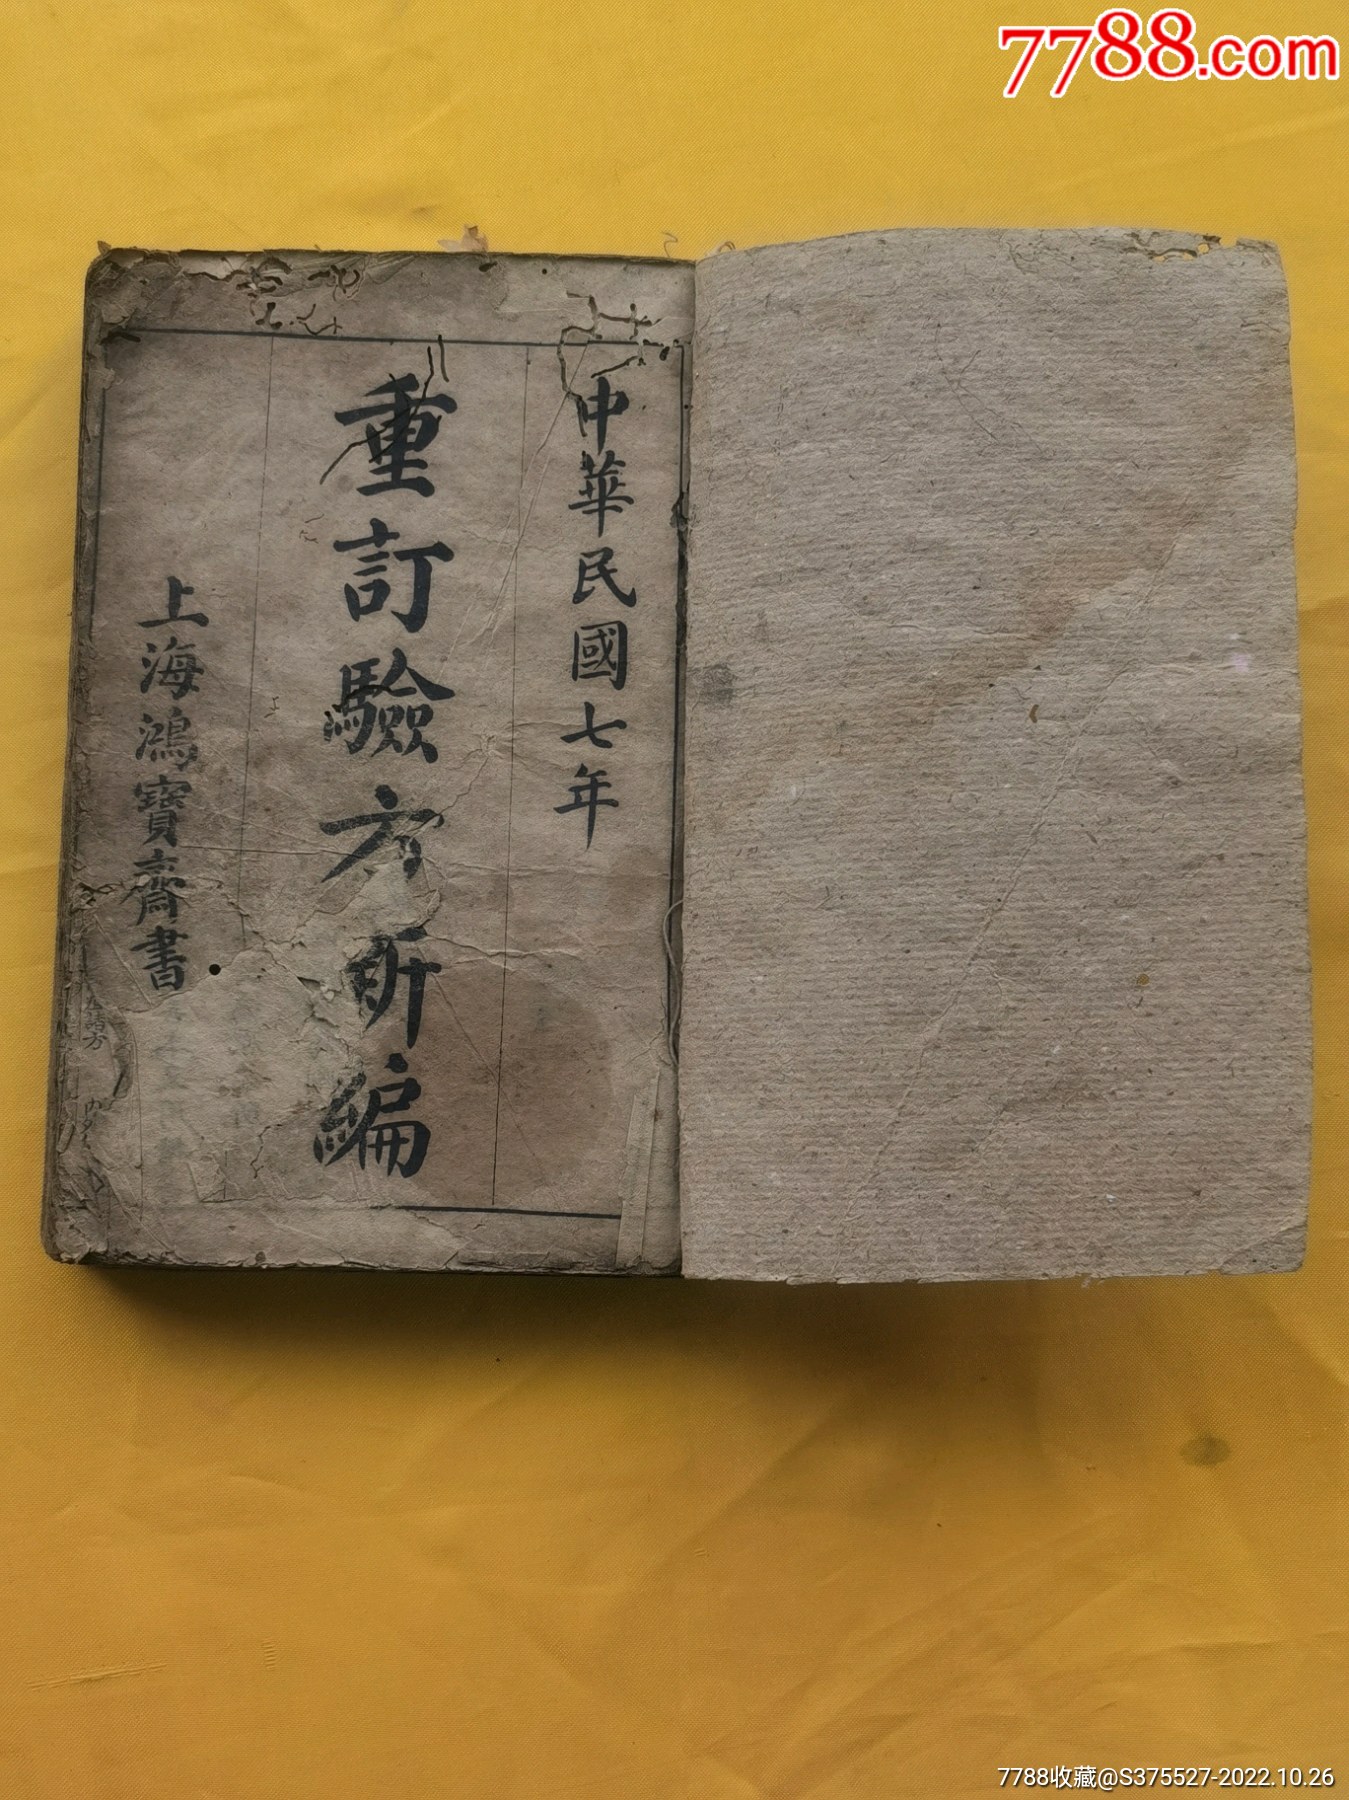 7788.com
中華民國七年
重訂驗方新編
上海鴻寶齋書
諸方
7788收藏@S375527-2022.10.26